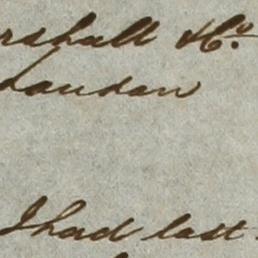 rshall & Co.
London
I had last